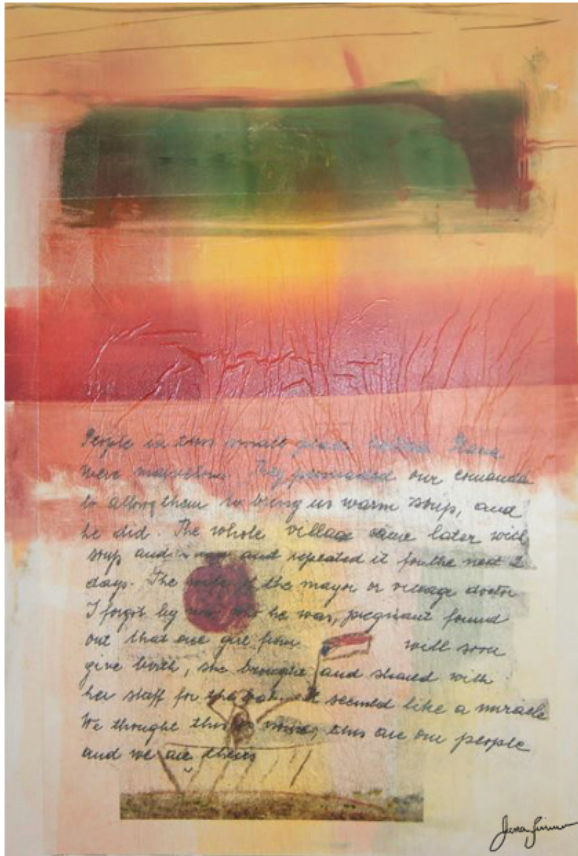 People in this small place
were marvelous. They persuaded our comanda
to allow them to bring us warm soup, and
he did. The whole village came later with
soup and and repeated it for the next 2
days. The wife of the mayor or village doctor
I forgot by now who he was, pregnant found
out that one girl from will soon
give birth, she brought and shared with
her staff for the It seemed like a miracle
We thought this this are our people
and we are theirs